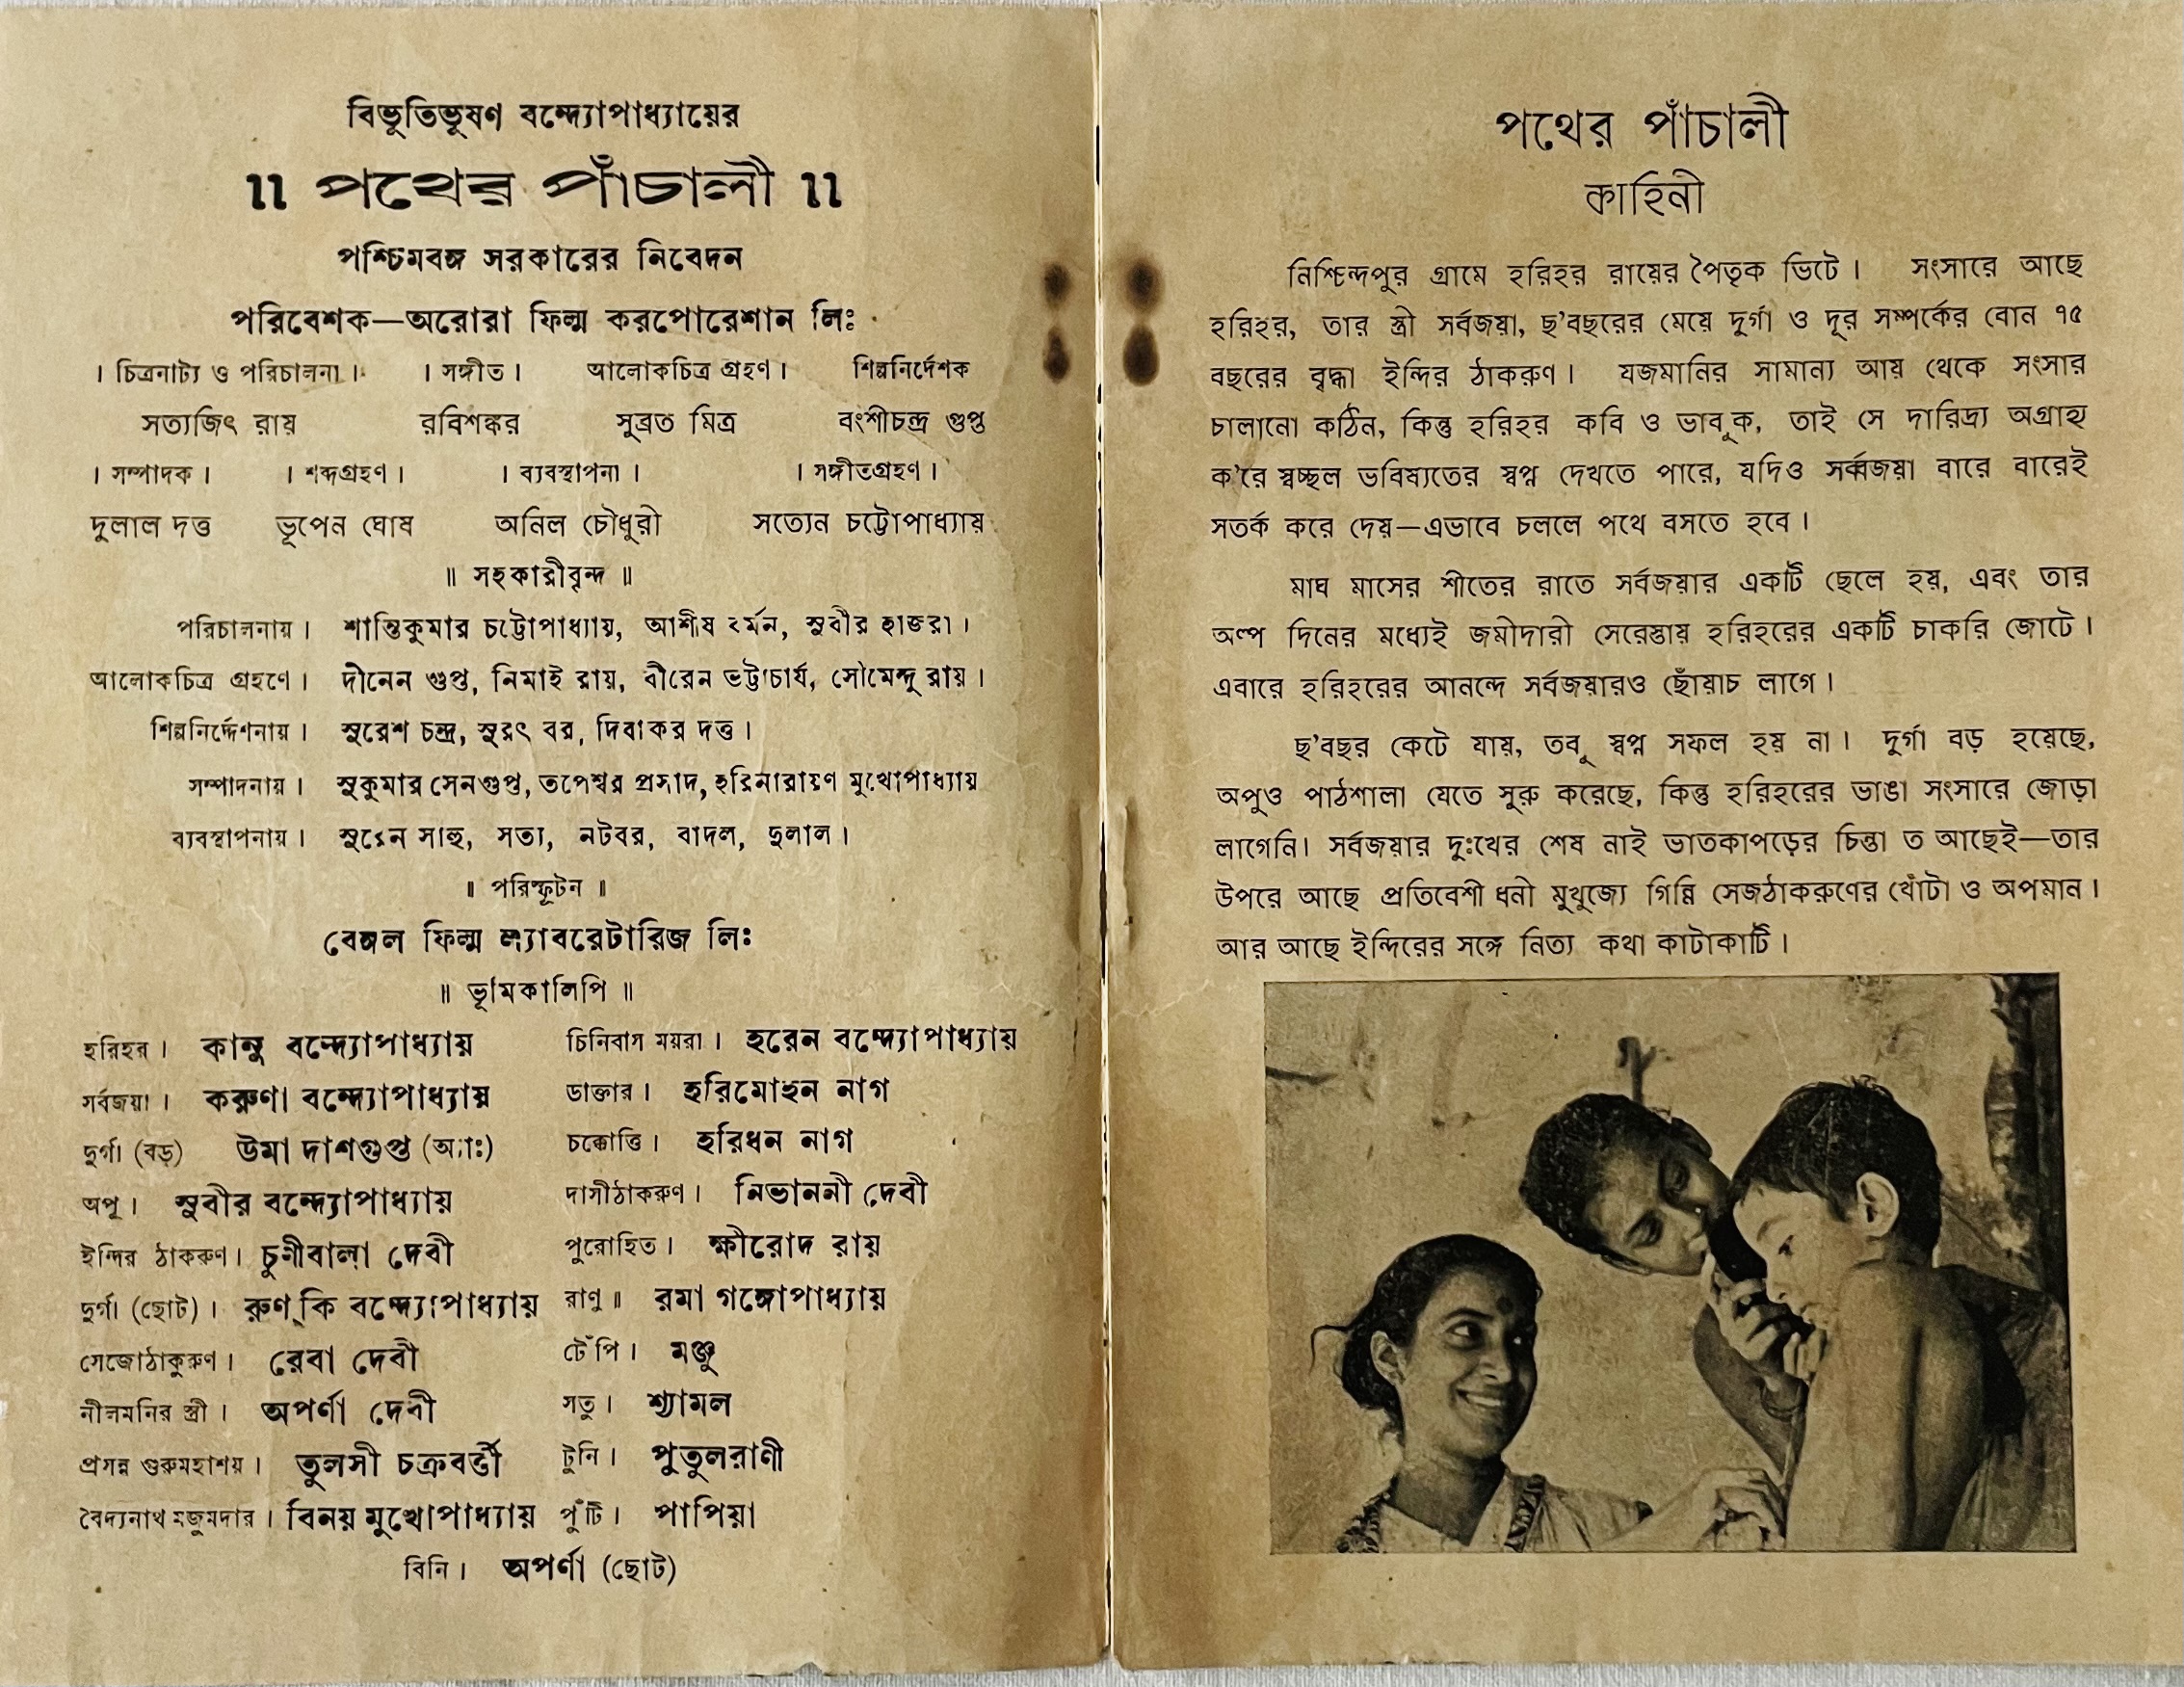 বিভূতিভূষণ বন্দ্যোপাধ্যায়ের
॥ পথের পাঁচালী ॥
পশ্চিমবঙ্গ সরকারের নিবেদন
পরিবেশক—অরোরা ফিল্ম করপোরেশান লিঃ
। চিত্রনাট্য ও পরিচালনা । । সঙ্গীত । আলোকচিত্র গ্রহণ । শিল্পনির্দেশক
সত্যজিৎ রায় রবিশঙ্কর সুব্রত মিত্র বংশীচন্দ্র গুপ্ত
। সম্পাদক । । শব্দগ্রহণ । । ব্যবস্থাপনা । । সঙ্গীতগ্রহণ ।
দুলাল দত্ত ভূপেন ঘোষ অনিল চৌধুরী সত্যেন চট্টোপাধ্যায়
॥ সহকারীবৃন্দ ॥
পরিচালনায় । শান্তিকুমার চট্টোপাধ্যায়, আশীষ বর্মন, সুবীর হাজরা ।
আলোকচিত্র গ্রহণে । দীনেন গুপ্ত, নিমাই রায়, বীরেন ভট্টাচার্য, সৌমেন্দু রায় ।
শিল্পনির্দ্দেশনায় । সুরেশ চন্দ্র, সুরৎ বর, দিবাকর দত্ত ।
সম্পাদনায় । সুকুমার সেনগুপ্ত, তপেশ্বর প্রসাদ, হরিনারায়ণ মুখোপাধ্যায়
ব্যবস্থাপনায় । সুরেন সাহু, সত্য, নটবর, বাদল, দুলাল ।
॥ পরিস্ফূটন ॥
বেঙ্গল ফিল্ম ল্যাবরেটারিজ লিঃ
॥ ভূমিকালিপি ॥
হরিহর । কানু বন্দ্যোপাধ্যায়
সর্বজয়া । করুণা বন্দ্যোপাধ্যায়
দুর্গা (বড়) উমা দাশগুপ্ত (অ্যাঃ)
অপু । সুবীর বন্দ্যোপাধ্যায়
ইন্দির ঠাকরুণ । চুণীবালা দেবী
দুর্গা (ছোট) । রুণ্‌কি বন্দ্যোপাধ্যায়
সেজোঠাকুরুণ । রেবা দেবী
নীলমনির স্ত্রী । অপর্ণা দেবী
প্রসন্ন গুরুমহাশয় । তুলসী চক্রবর্ত্তী
বৈদ্যনাথ মজুমদার । বিনয় মুখোপাধ্যায়
চিনিবাস ময়রা । হরেন বন্দ্যোপাধ্যায়
ডাক্তার । হরিমোহন নাগ
চক্কোত্তি । হরিধন নাগ
দাসীঠাকরুণ । নিভাননী দেবী
পুরোহিত । ক্ষীরোদ রায়
রাণু ॥ রমা গঙ্গোপাধ্যায়
টেঁপি । মঞ্জু
সতু । শ্যামল
টুনি । পুতুলরাণী
পুঁটি । পাপিয়া
বিনি । অপর্ণা (ছোট)
পথের পাঁচালী
কাহিনী
নিশ্চিন্দপুর গ্রামে হরিহর রায়ের পৈতৃক ভিটে । সংসারে আছে
হরিহর, তার স্ত্রী সর্বজয়া, ছ'বছরের মেয়ে দুর্গা ও দূর সম্পর্কের বোন ৭৫
বছরের বৃদ্ধা ইন্দির ঠাকরুণ । যজমানির সামান্য আয় থেকে সংসার
চালানো কঠিন, কিন্তু হরিহর কবি ও ভাবুক, তাই সে দারিদ্র্য অগ্রাহ্য
ক'রে স্বচ্ছল ভবিষ্যতের স্বপ্ন দেখতে পারে, যদিও সর্ব্বজয়া বারে বারেই
সতর্ক করে দেয়—এভাবে চললে পথে বসতে হবে ।
মাঘ মাসের শীতের রাতে সর্বজয়ার একটি ছেলে হয়, এবং তার
অল্প দিনের মধ্যেই জমীদারী সেরেস্তায় হরিহরের একটি চাকরি জোটে ।
এবারে হরিহরের আনন্দে সর্বজয়ারও ছোঁয়াচ লাগে ।
ছ'বছর কেটে যায়, তবু স্বপ্ন সফল হয় না । দুর্গা বড় হয়েছে,
অপুও পাঠশালা যেতে সুরু করেছে, কিন্তু হরিহরের ভাঙা সংসারে জোড়া
লাগেনি। সর্বজয়ার দুঃখের শেষ নাই ভাতকাপড়ের চিন্তা ত আছেই—তার
উপরে আছে প্রতিবেশী ধনী মুখুজ্যে গিন্নি সেজঠাকরুণের খোঁটা ও অপমান ।
আর আছে ইন্দিরের সঙ্গে নিত্য কথা কাটাকাটি ।